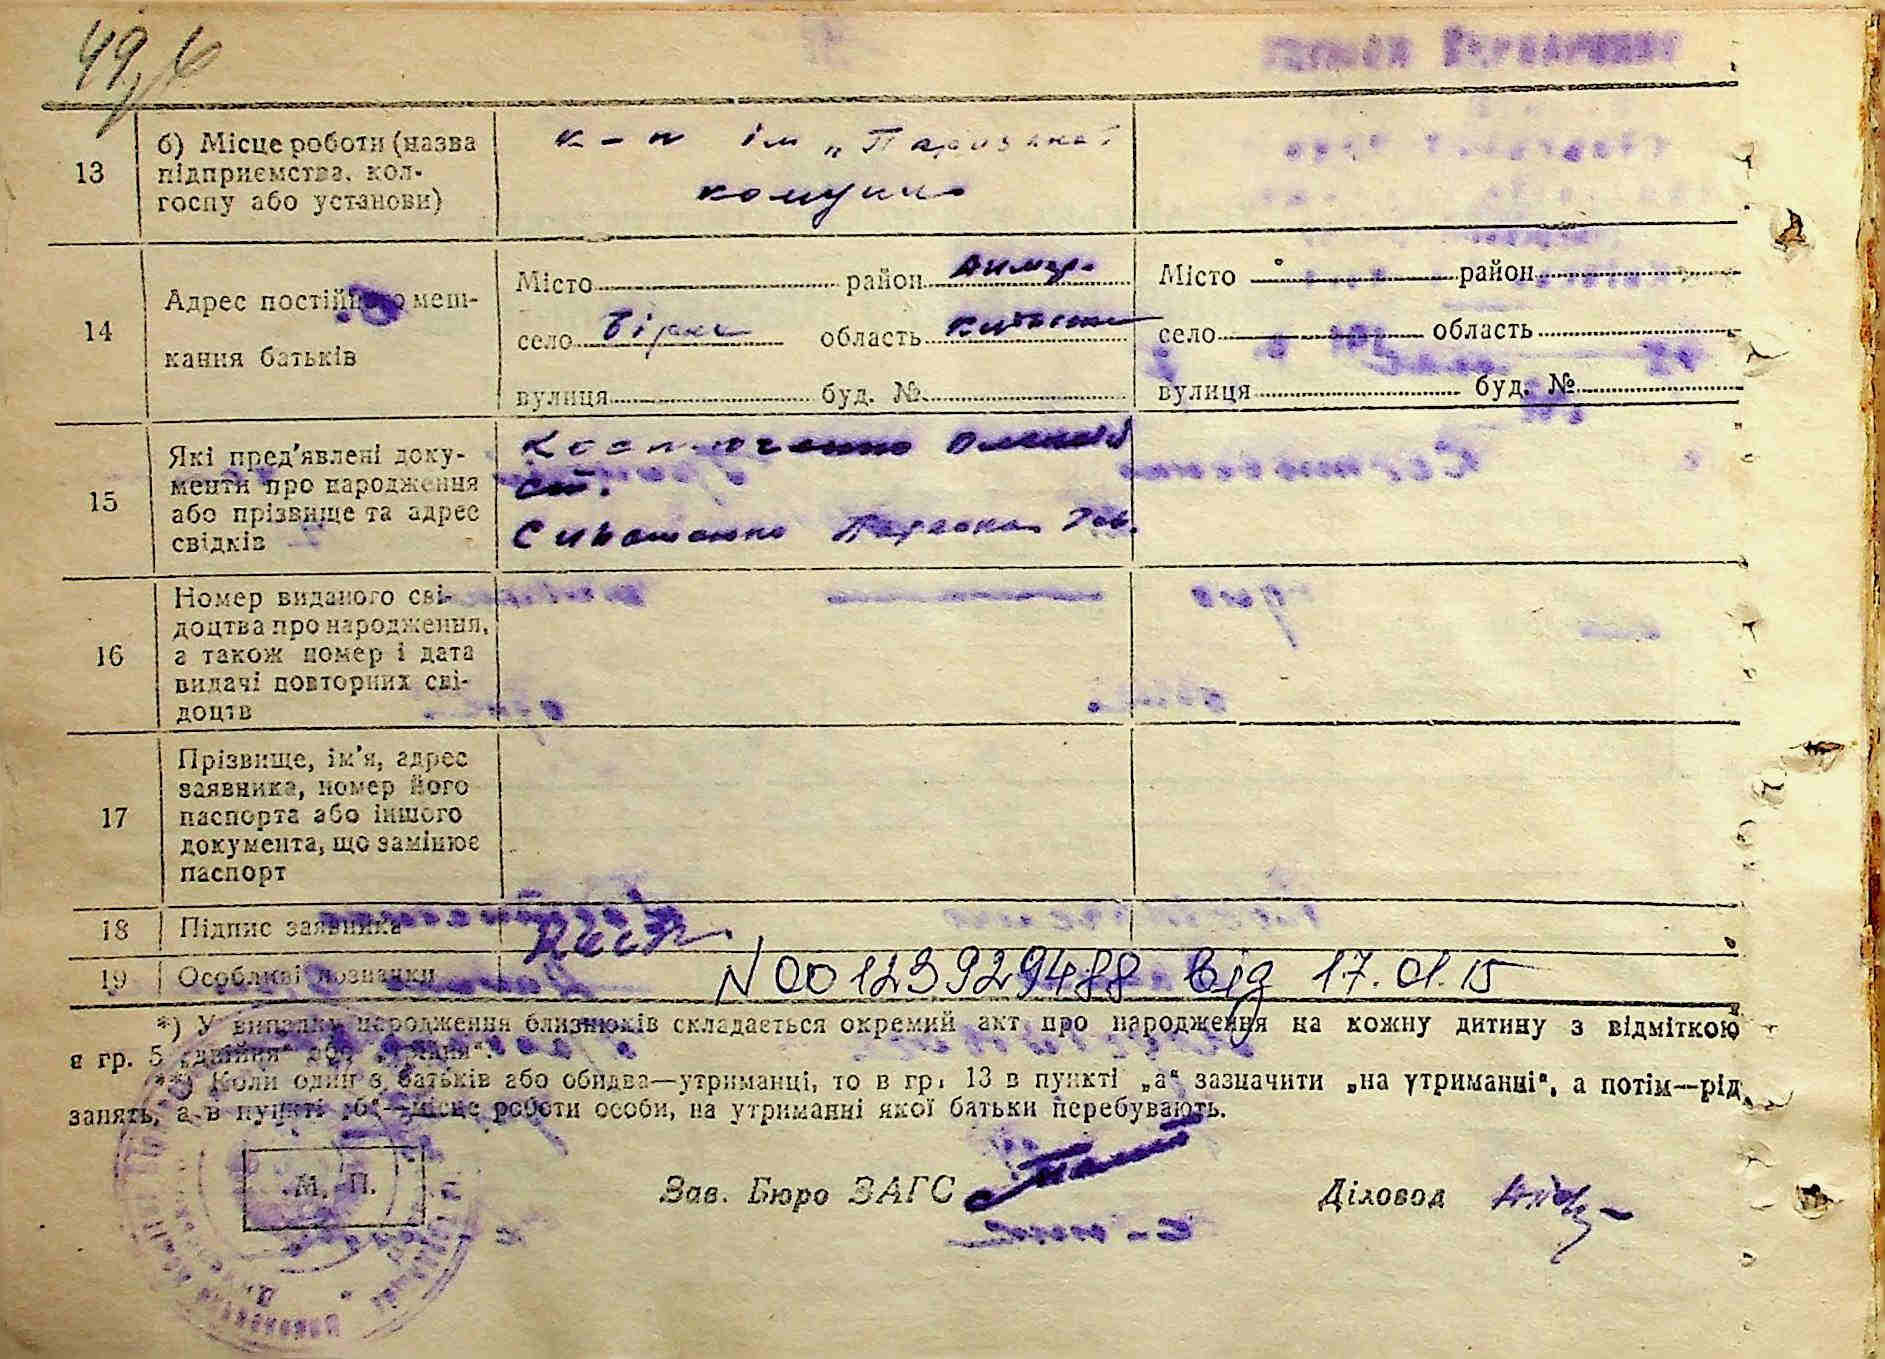 49,6
13
б) Місце роботи (назва
підприємства, кол-
госпу або установи)
к-п ім „Паризької
комуни
14
Адрес постійного меш-
кання батьків
Місто район Димер.
село Бірки область Київська
вулиця буд. №
Місто район
село область
вулиця буд. №
15
Які пред'явлені доку-
менти про народження
або прізвище та адрес
свідків
Костюченко
ст.
16
Номер виданого сві-
доцтва про народження,
а також номер і дата
видачі повторних сві-
доцтв
17
Прізвище, ім'я, адрес
заявника, номер його
паспорта або іншого
документа, що замінює
паспорт
18
Підпис заявника
19
Особливі позначки
N 00123929488 від 17.01.15
*) У випадку народження близнюків складається окремий акт про народження на кожну дитину з відміткою
в гр. 5 „двійня“ або „трійня“.
**) Коли один з батьків або обидва—утриманці, то в гр. 13 в пункті „а“ зазначити „на утриманні“, а потім—рід
занять, а в пункті „б“—місце роботи особи, на утриманні якої батьки перебувають.
М. П.
Зав. Бюро ЗАГС
Діловод